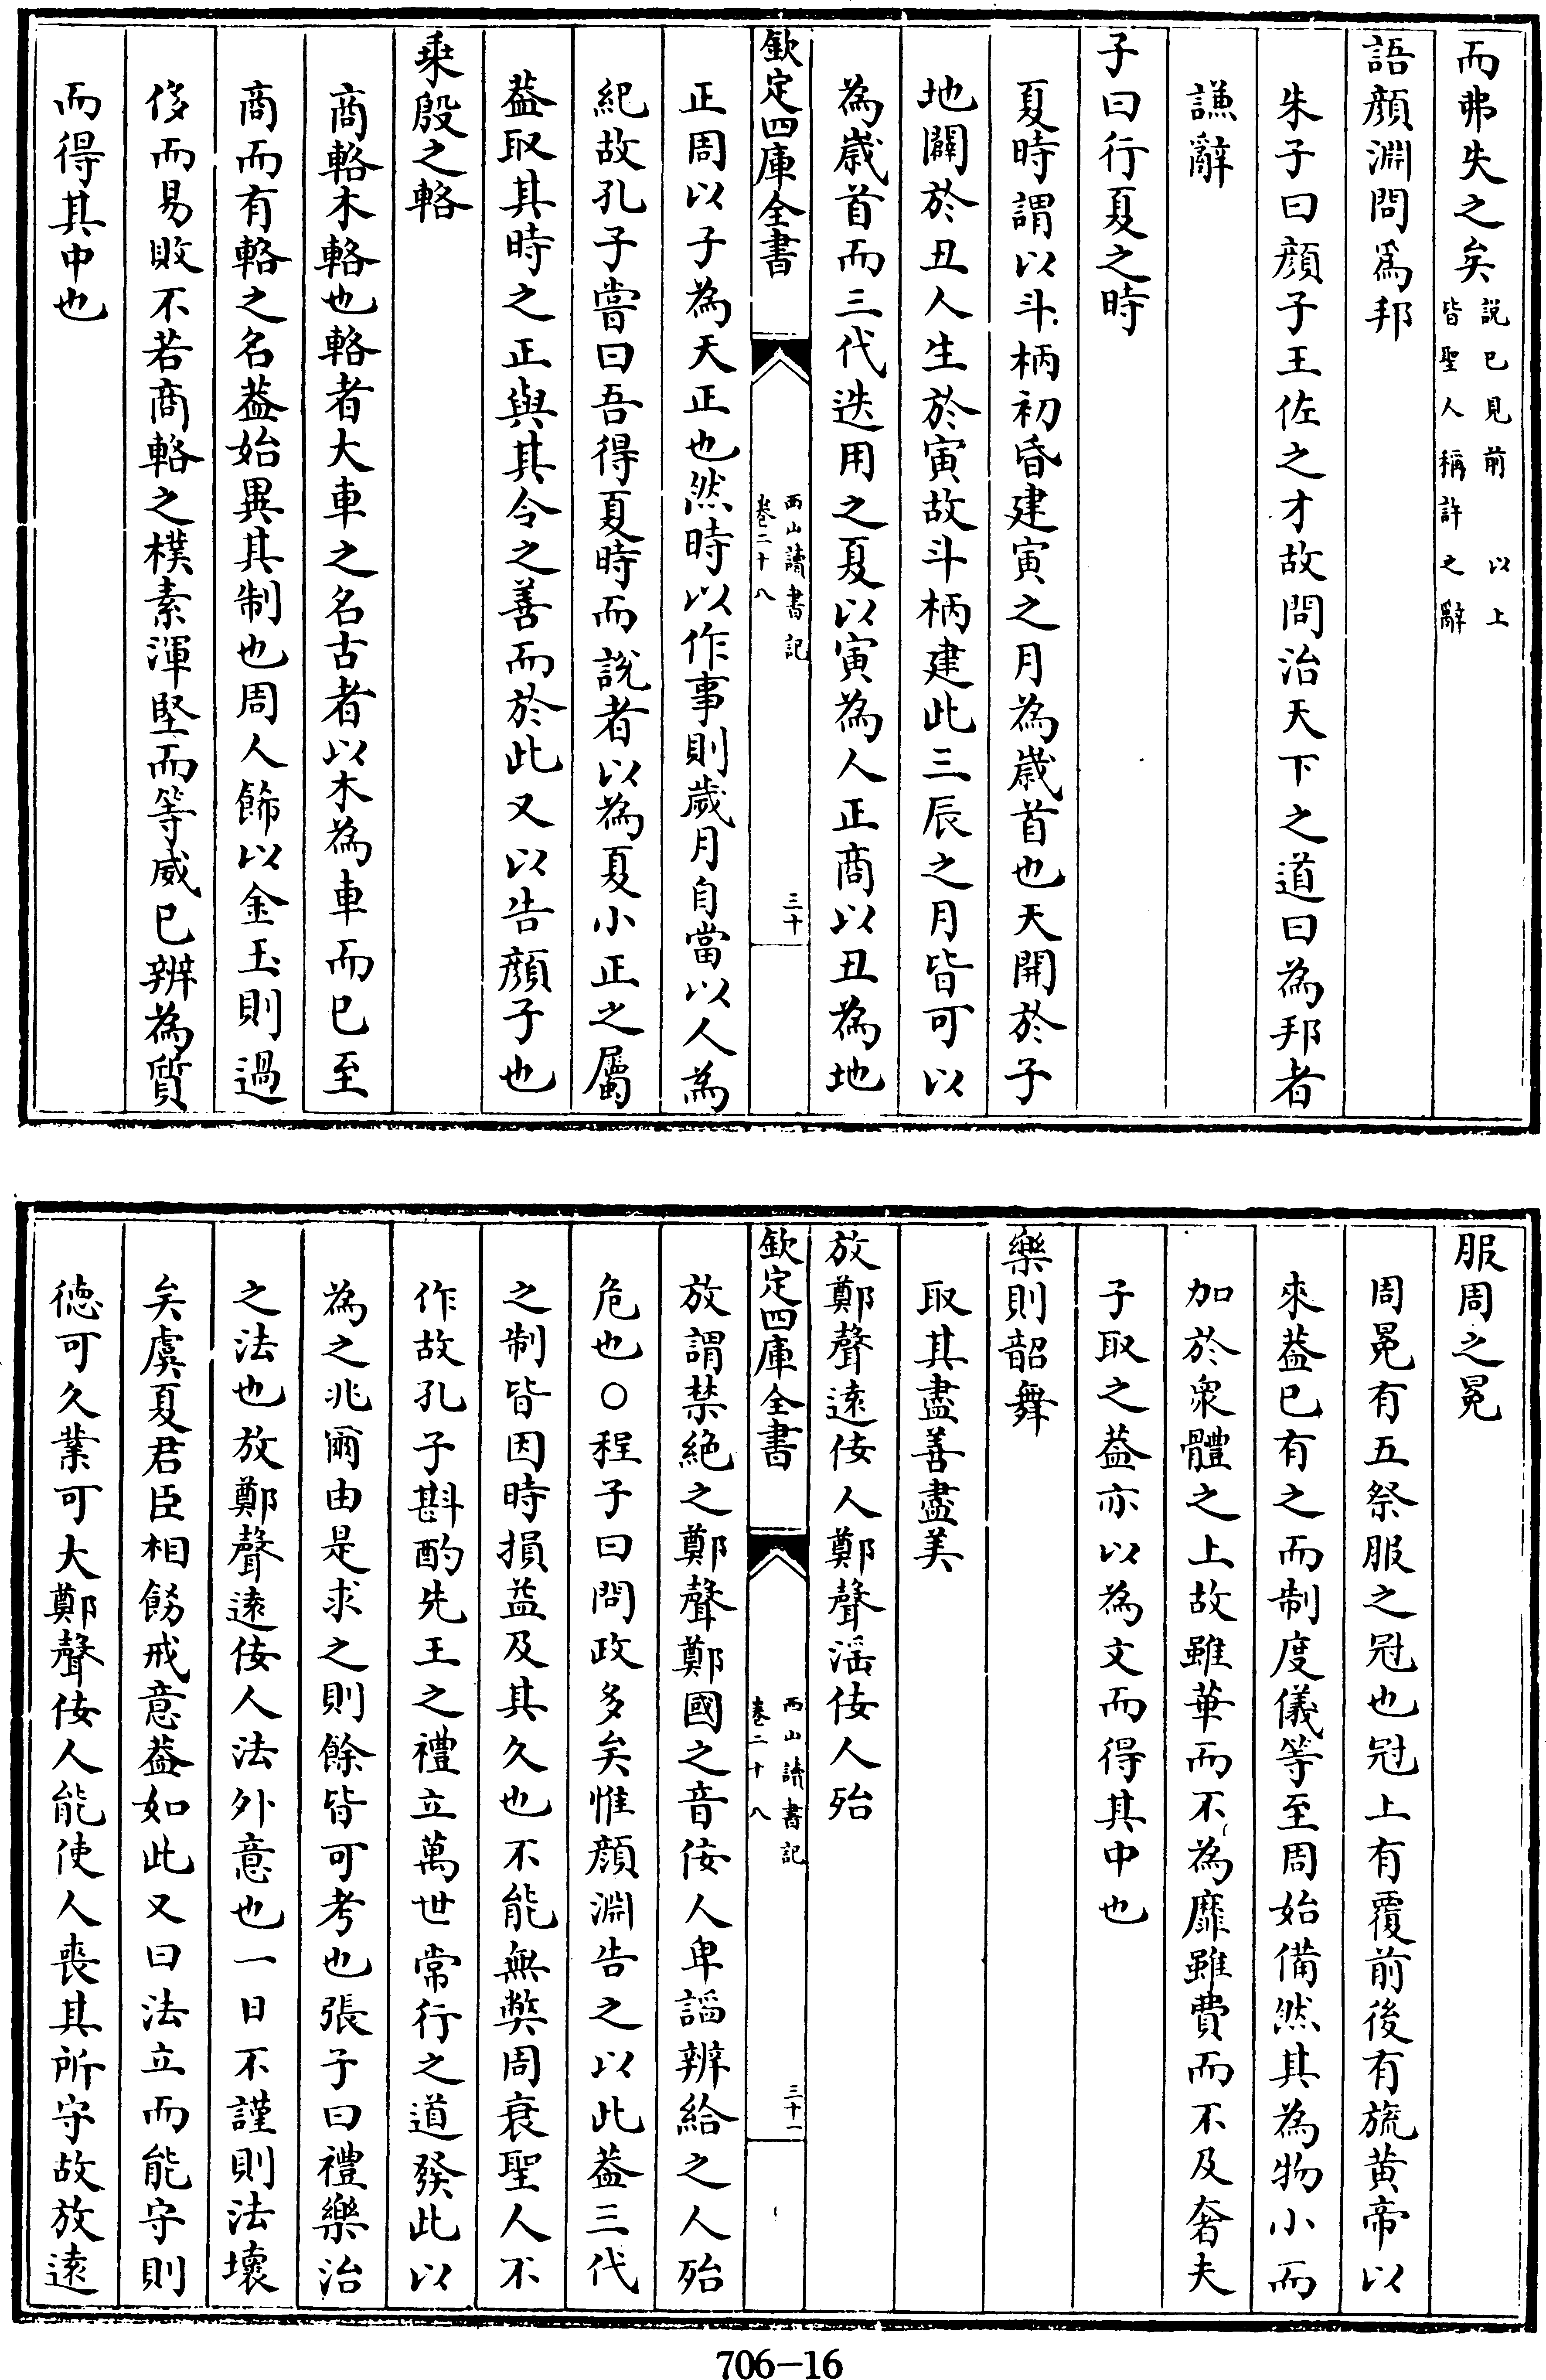 而弗失之矣說已見前　以上皆聖人稱許之辭
語顔淵問爲邦
朱子曰顔子王佐之才故問治天下之道曰為邦者
謙辭
子曰行夏之時
夏時謂以斗柄初昏建寅之月為歲首也天開於子
地闢於丑人生於寅故斗柄建此三辰之月皆可以
為歲首而三代迭用之夏以寅為人正商以丑為地
欽定四庫全書
西山讀書記
卷二十八
三十
正周以子為天正也然時以作事則歲月自當以人為
紀故孔子嘗曰吾得夏時而說者以為夏小正之屬
葢取其時之正與其令之善而於此又以告顔子也
乗殷之輅
商輅木輅也輅者大車之名古者以木為車而已至
商而有輅之名葢始異其制也周人飾以金玉則過
侈而易敗不若商輅之樸素渾堅而等威已辨為質
而得其中也
服周之冕
周冕有五祭服之冠也冠上有覆前後有旒黄帝以
來葢已有之而制度儀等至周始備然其為物小而
加於衆體之上故雖華而不為靡雖費而不及奢夫
子取之葢亦以為文而得其中也
樂則韶舞
取其盡善盡美
放鄭聲遠佞人鄭聲滛佞人殆
欽定四庫全書
西山讀書記
卷二十八
三十一
放謂禁絶之鄭聲鄭國之音佞人卑謟辨給之人殆
危也○程子曰問政多矣惟顔淵告之以此葢三代
之制皆因時損益及其久也不能無弊周衰聖人不
作故孔子斟酌先王之禮立萬世常行之道發此以
為之兆爾由是求之則餘皆可考也張子曰禮樂治
之法也放鄭聲遠佞人法外意也一日不謹則法壞
矣虞夏君臣相飭戒意葢如此又曰法立而能守則
德可久業可大鄭聲佞人能使人喪其所守故放遠
706-16